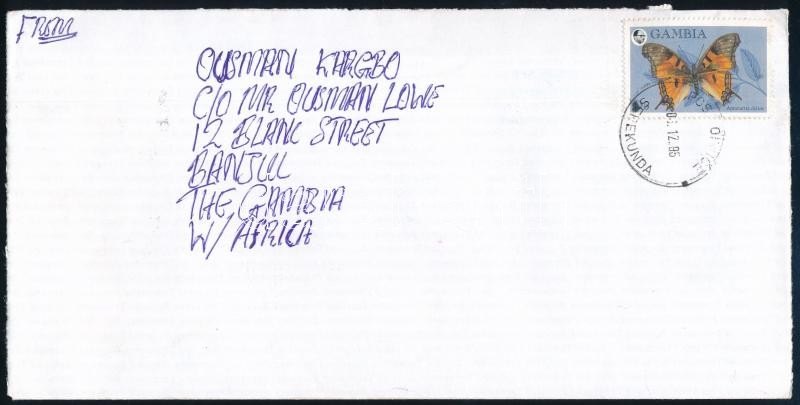 FROM
OUSMAN KARGBO
C/O MR OUSMAN LOWE
12 BLANC STREET
BANJUL
THE GAMBIA
W/ AFRICA
GAMBIA
POST OFFICE
06.12.95
SEREKUNDA